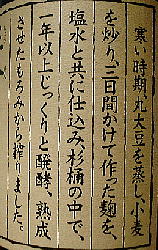 寒い時期、丸大豆を蒸し、小麦
を炒り、三日間かけて作った麹を
塩水と共に仕込み、杉桶の中で、
一年以上じっくりと醗酵、熟成
させたもろみから搾りました。